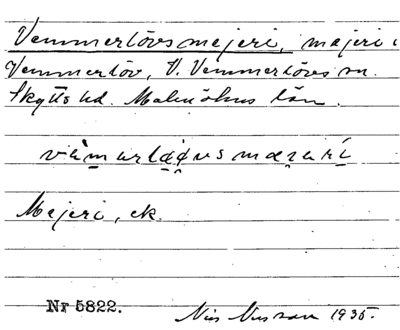 Vemmerlövsmejeri, mejeri i
Vemmerlöv, V. Vemmerlövs sn.
Skytts hd. Malmöhus län.
Mejeri, ek.
Nr 5822. Nils 1935.